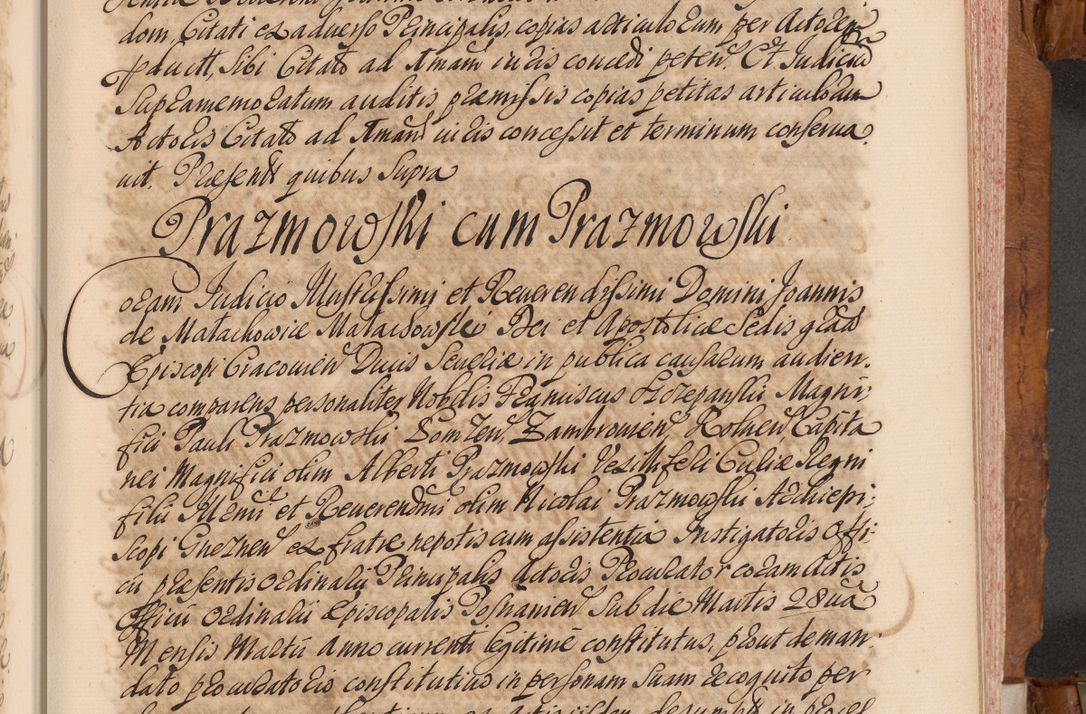 dem Citati ex adverso Principalis, copias articulorum per Actorem
product, sibi Citato ad Amanū iudis concedi peten. Et Iudiciū
Supramemoratum auditis præmissis copias petitas articulorum
Actoris Citato ad Amanū iudis concessit et terminum conserva
uit. Presentt quibus supra
Prazmowski cum Prazmowski
Coram Iudicio Illustrissimi et Reverendissimi Domini Joannis
de Małachowice Małachowski Dei et Apostolicæ Sedis grãã
Episcopi Cracovien Ducis Severiæ in publica causarum audien.
tia comparens personaliter Nobilis Franciscus Szczepanski Magni:
fici Pauli Prazmowski Lomzen, Zambrovien Kolnen Capita
nei Magnifici olim Alberti Prazmowski Vexilliferi Curiæ Regni
filii Illmi et Reverendmi olim Nicolai Prazmowski Archiepi:
scopi Gneznen ex fratre nepotis cum assistentia Instigatoris Offi:
cii præsentis ordinarii Principalis Actoris Procurator coram Actis
Officii ordinarii Episcopalis Posnanien sub die Martis 28 uã
Mensis Martii Anno currenti legitimè constitutus, prout de man:
dato procuratorio constitutivo in personam suam recognito per